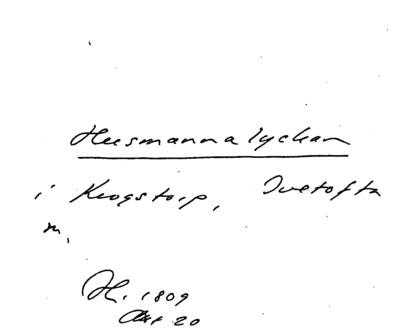 Husmannalyckan
i Krogstorp, Ivetofta
sn,
H. 1809
Akt 20